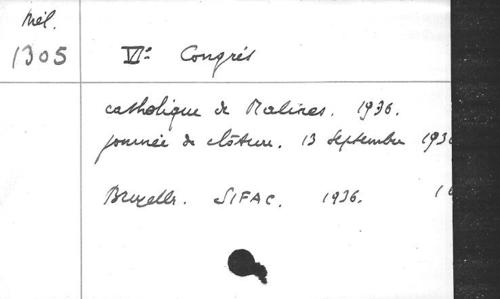 Mél.
1305
VIe Congrès
catholique de Malines. 1936.
journée de clôture. 13 septembre 193
Bruxelles. SIFAC. 1936.